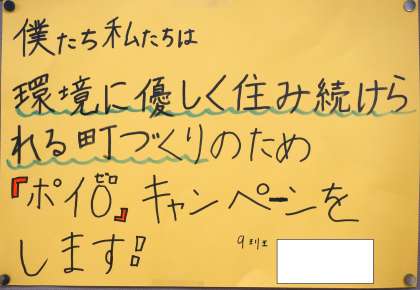 僕たち私たちは
環境に優しく住み続けら
れる町づくりのため
『ポイ0』キャンペーンを
ゼロ
します!!
9班